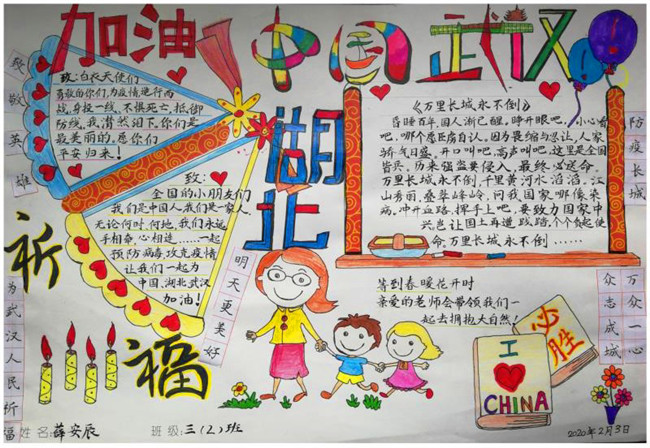 加油中国武汉
湖北
致敬英雄
致:白衣天使们
勇敢的你们,为疫情逆行而
战,身投一线,不惧死亡,抵御
防线,我潸然泪下,你们是
最美丽的,愿你们
平安归来!
致:
全国的小朋友们
我们是中国人,我们是一家人,
无论何时,何地,我们永远
手相牵,心相连……一起
预防病毒,攻克疫情
让我们一起为
中国,湖北武汉
加油!
《万里长城永不倒》
昏睡百年,国人渐已醒。睁开眼吧,小心看
吧,哪个愿臣虏自认。因为畏缩与忍让,人家
骄气日盛。开口叫吧,高声叫吧,这里是全国
皆兵。历来强盗要侵入,最终必送命。
万里长城永不倒,千里黄河水滔滔,江
山秀丽,叠翠峰岭,问我国家哪像染
病。冲开血路,挥手上吧,要致力国家中
兴岂让国土再遭践踏,个个负起使
命,万里长城永不倒……
防疫长城
祈福
明天更美好
等到春暖花开时
亲爱的老师会带领我们一
起去拥抱大自然!
众志成城
万众一心
I
CHINA
必胜
为武汉人民祈福
姓名:薛安辰
班级:三(2)班
2020年2月3日